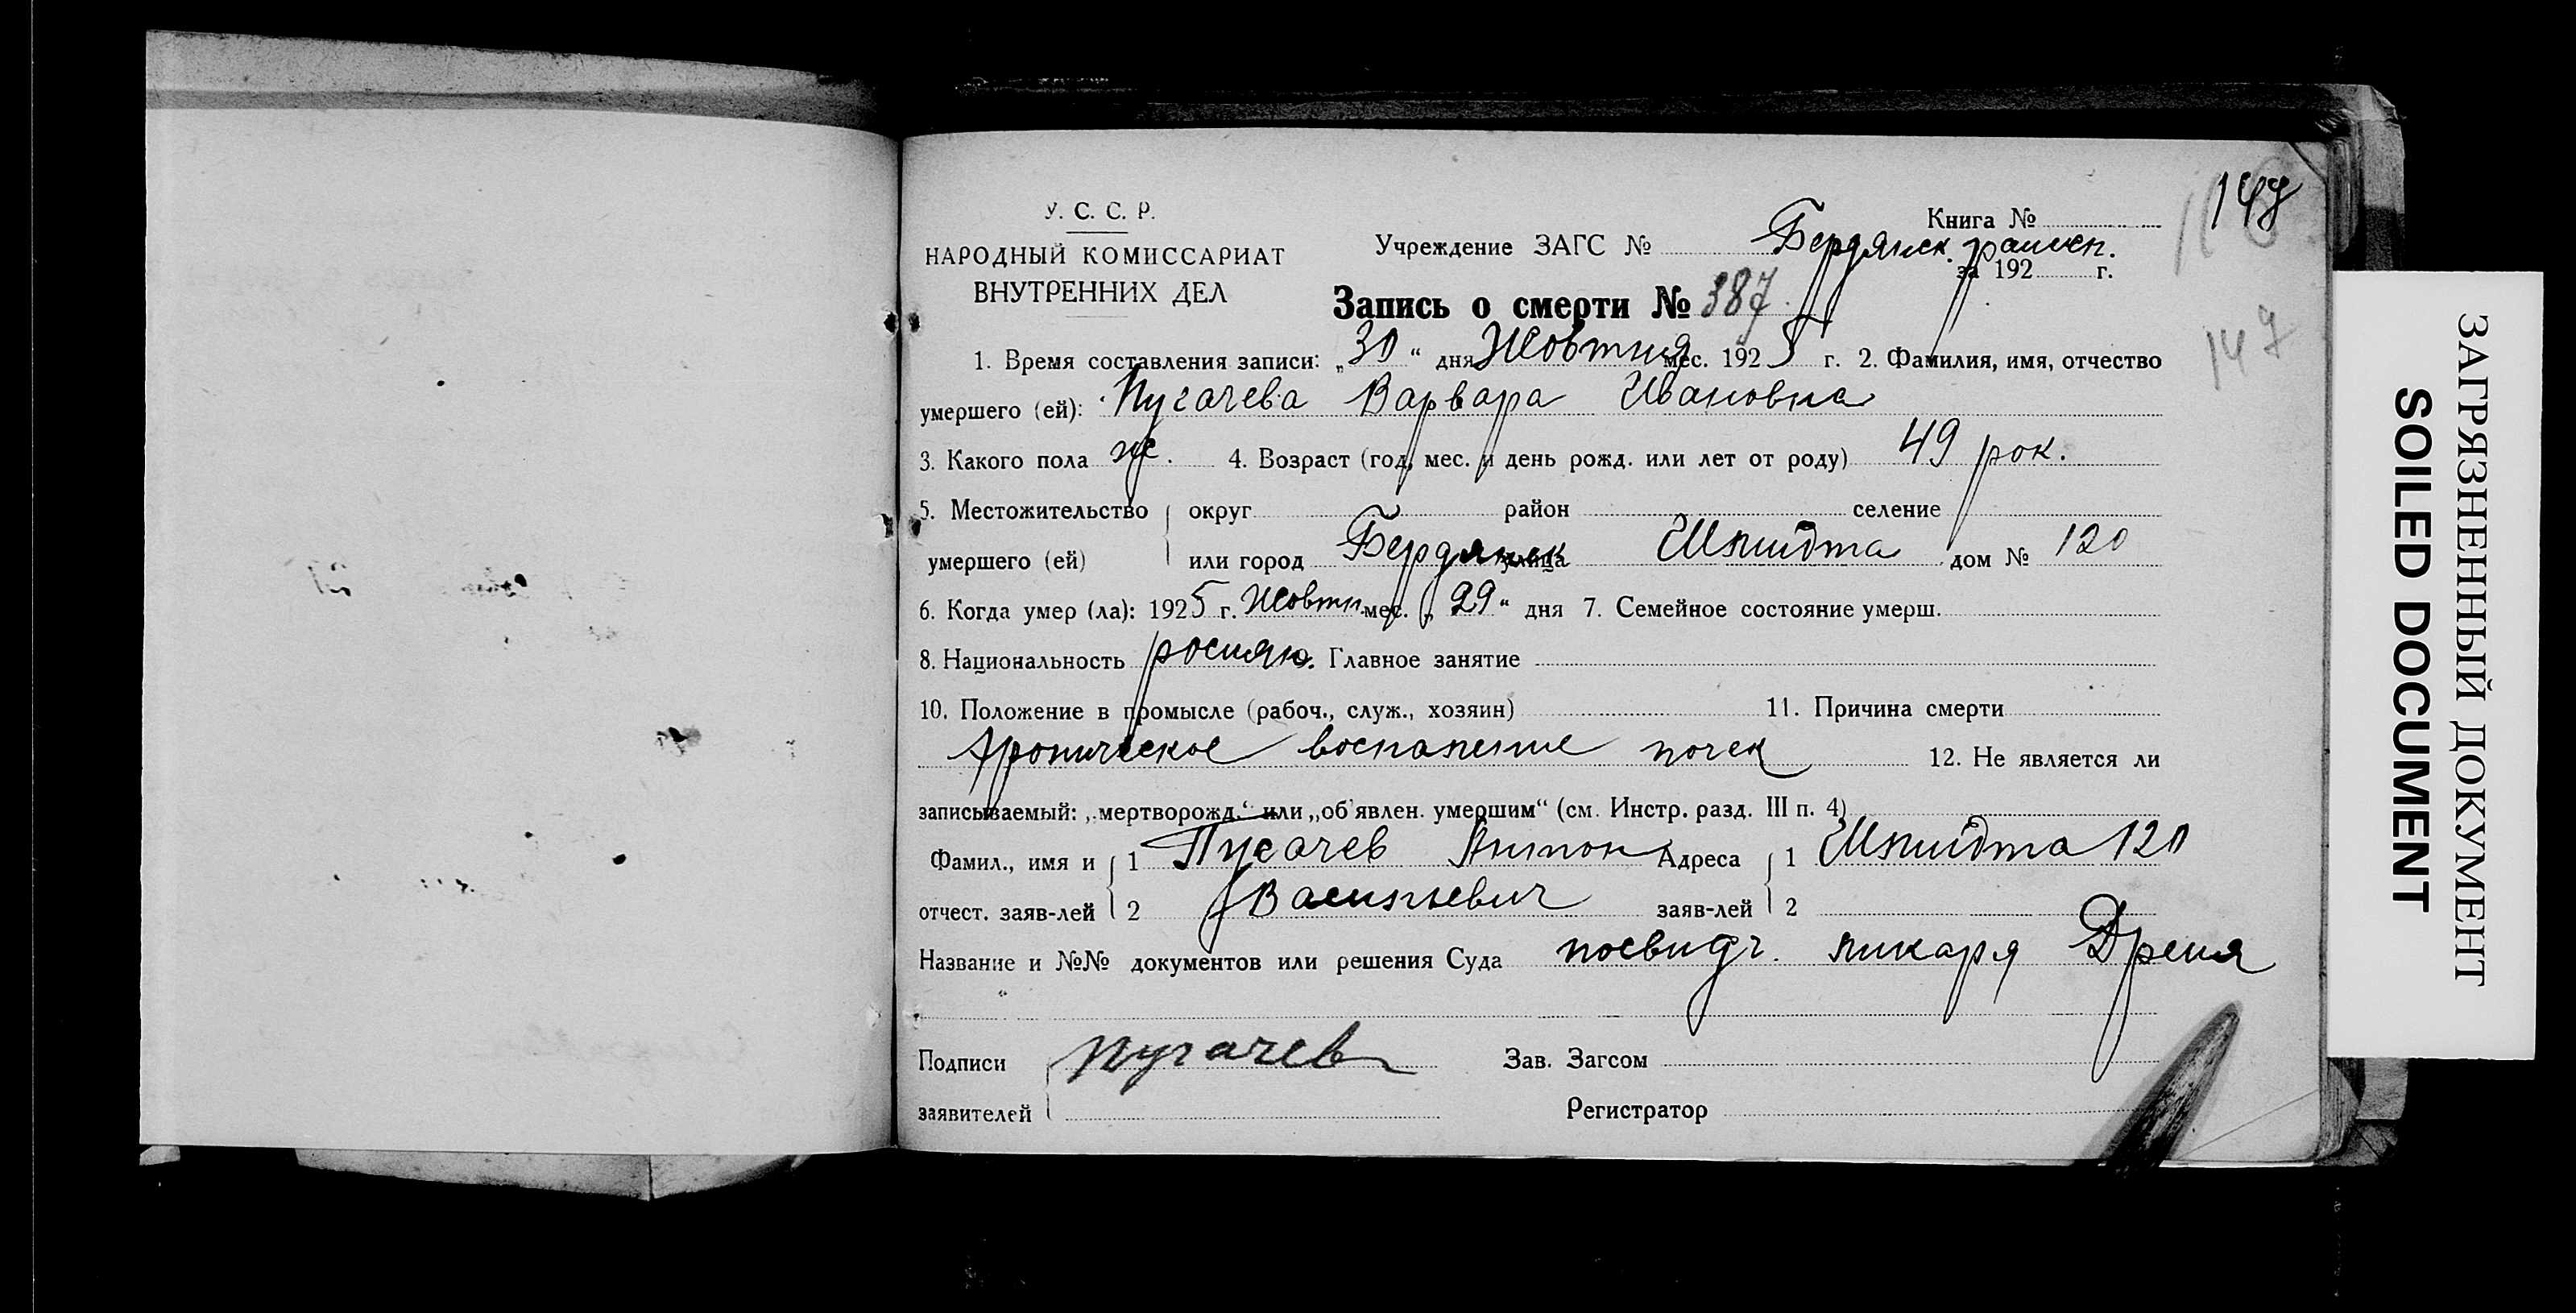 У. С. С. Р.
НАРОДНЫЙ КОМИССАРИАТ
ВНУТРЕННИХ ДЕЛ
Книга №
148
Учреждение ЗАГС № Бердянск.
за 192 г.
Запись о смерти № 387.
147
1. Время составления записи: „30“ дня Жовтня мес. 1925 г. 2. Фамилия, имя, отчество
умершего (ей): Пугачева Варвара Ивановна
3. Какого пола ж. 4. Возраст (год, мес. и день рожд. или лет от роду) 49 рок.
5. Местожительство округ район селение
умершего (ей) или город Бердянск улица Шмидта дом № 120
6. Когда умер (ла): 1925 г. Жовтн. мес. „29“ дня 7. Семейное состояние умерш.
8. Национальность росиян. Главное занятие
10. Положение в промысле (рабоч., служ., хозяин) 11. Причина смерти
Хроническое воспаление почек 12. Не является ли
записываемый: „мертворожд.“ или „об'явлен. умершим“ (см. Инстр. разд. III п. 4)
Фамил., имя и 1 Пугачев Антон Адреса 1 Шмидта 120
отчест. заяв-лей 2 Васильевич заяв-лей 2
Название и №№ документов или решения Суда посвидч. ликаря
Подписи Пугачев Зав. Загсом
заявителей Регистратор
ЗАГРЯЗНЕННЫЙ ДОКУМЕНТ
SOILED DOCUMENT